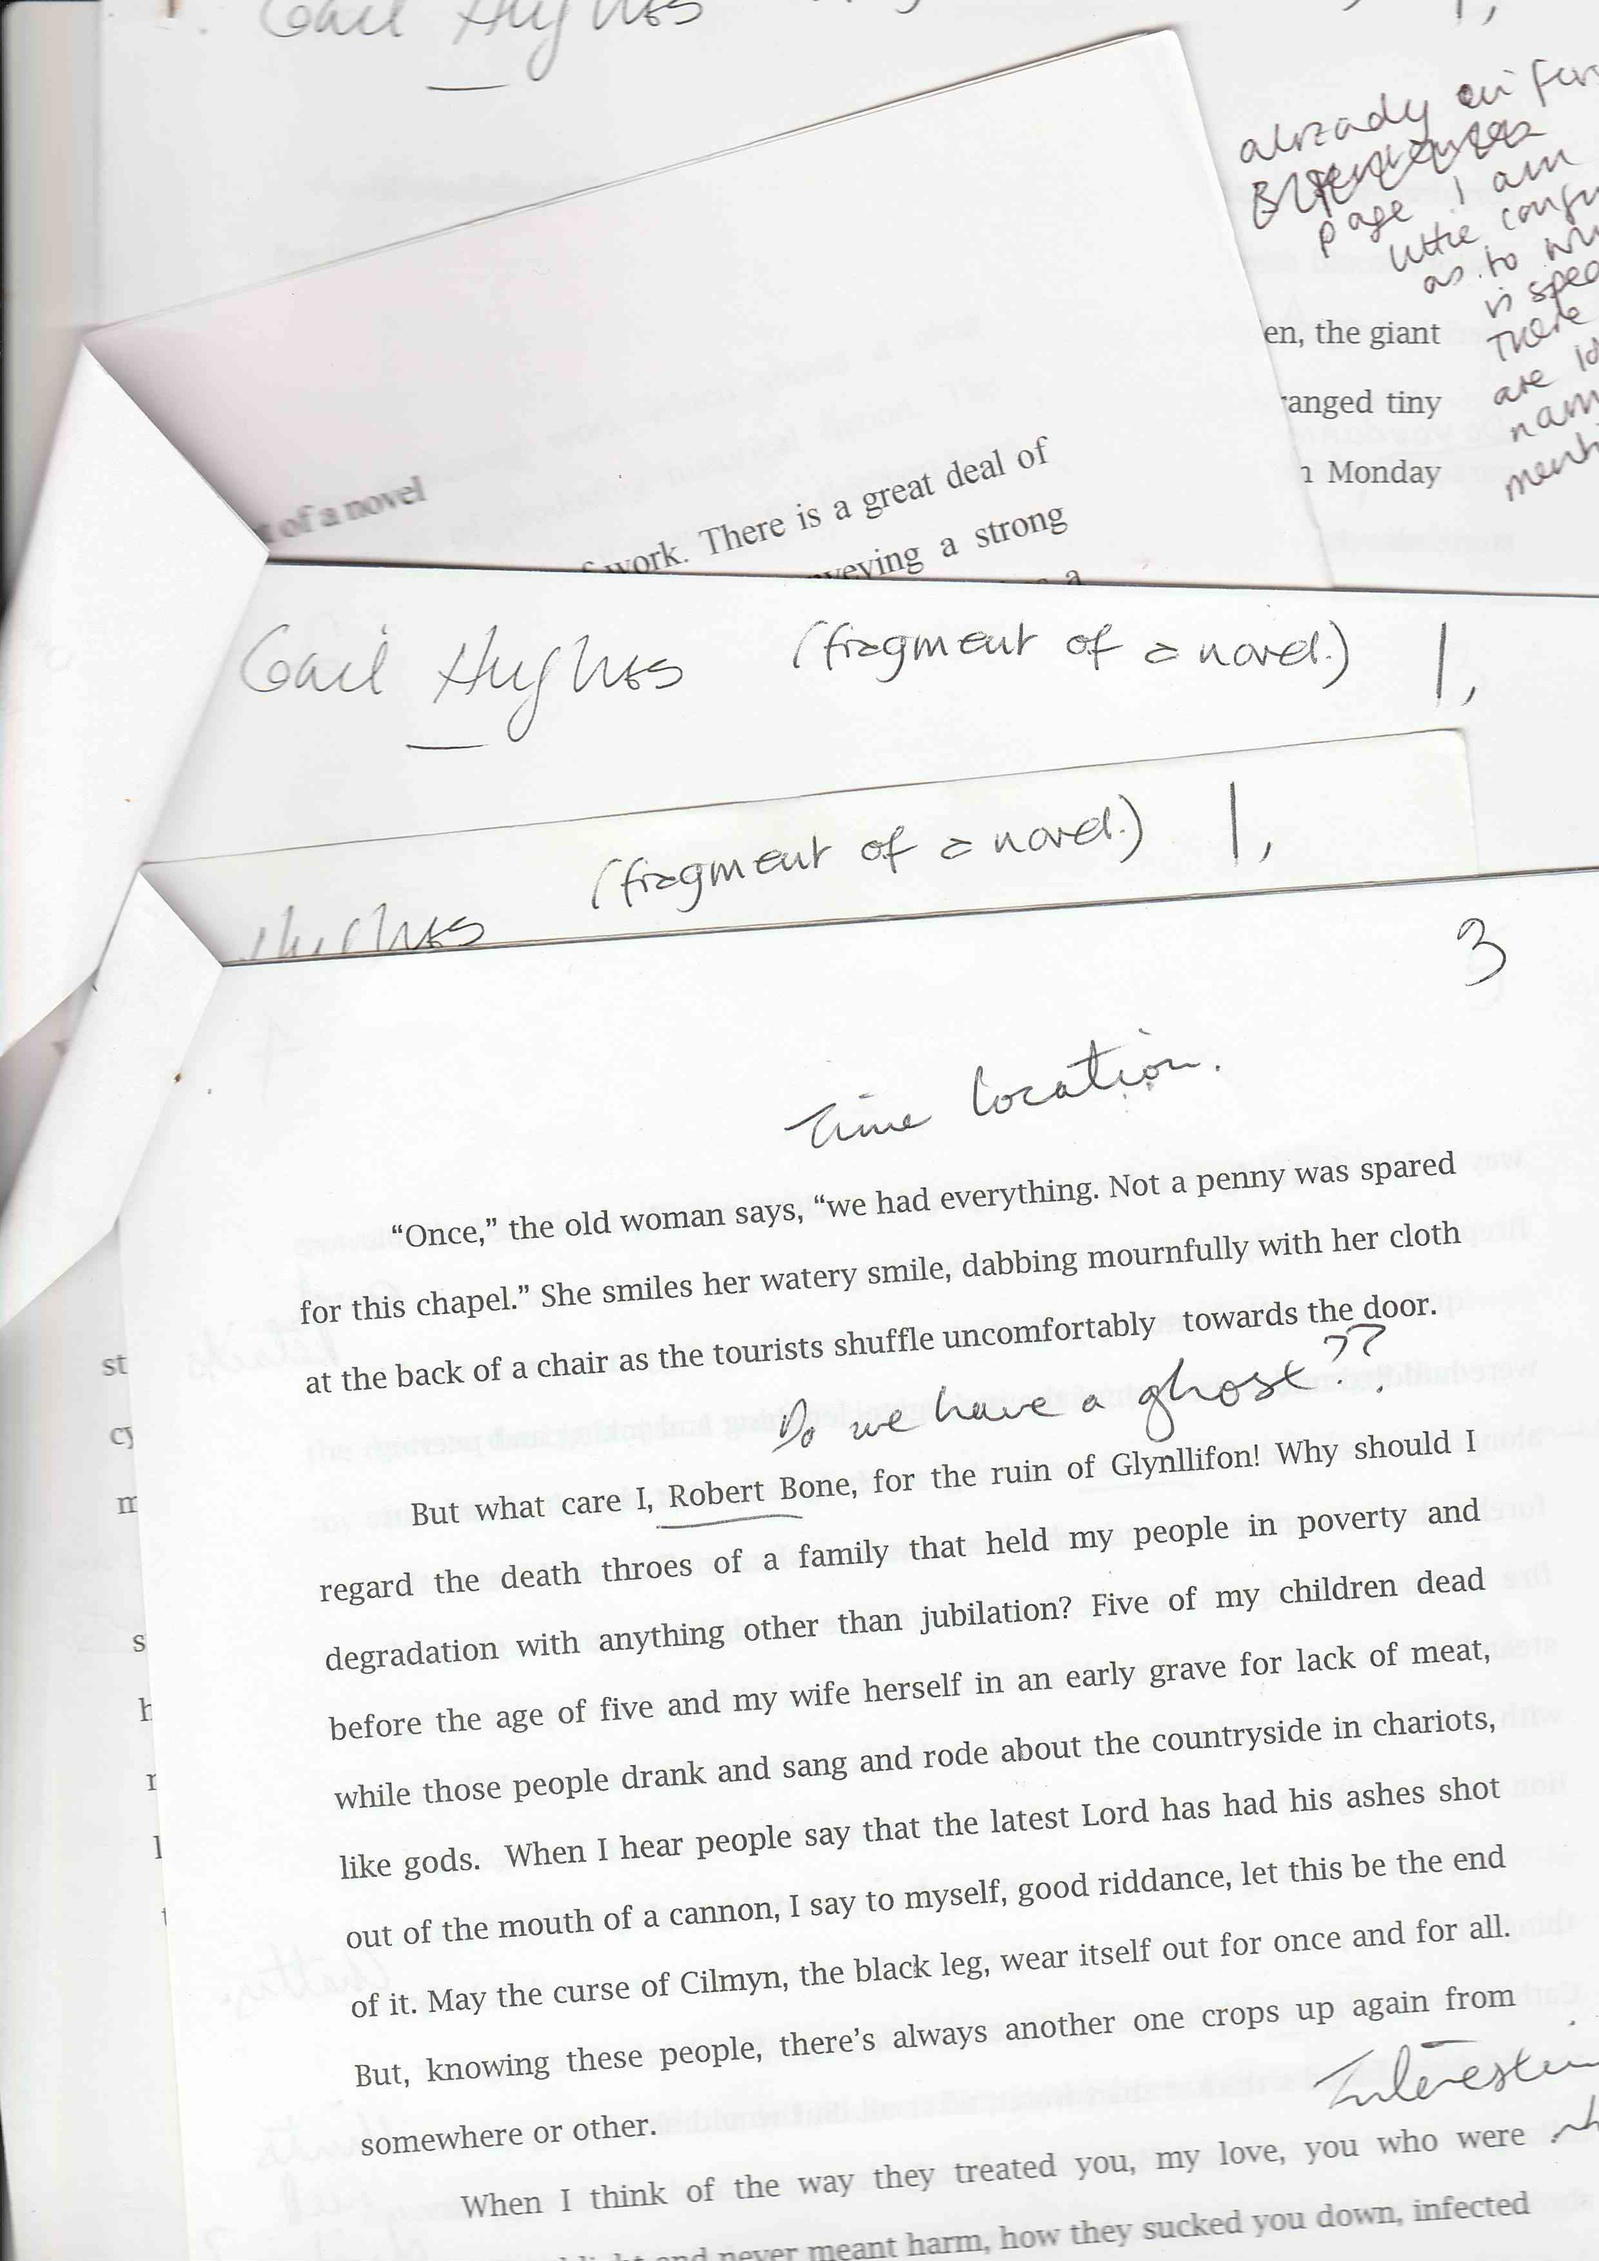 Gail Hughes
already in first
page I am
little
as to
is
There
are
en, the giant
ranged tiny
n Monday
t of a novel
work. There is a great deal of
veying a strong
a
Gail Hughes (fragment of a novel.) 1,
(fragment of a novel.) 1,
Hughes
3
Time location.
“Once,” the old woman says, “we had everything. Not a penny was spared
for this chapel.” She smiles her watery smile, dabbing mournfully with her cloth
at the back of a chair as the tourists shuffle uncomfortably towards the door.
Do we have a ghost??
But what care I, Robert Bone, for the ruin of Glynllifon! Why should I
regard the death throes of a family that held my people in poverty and
degradation with anything other than jubilation? Five of my children dead
before the age of five and my wife herself in an early grave for lack of meat,
while those people drank and sang and rode about the countryside in chariots,
like gods. When I hear people say that the latest Lord has had his ashes shot
out of the mouth of a cannon, I say to myself, good riddance, let this be the end
of it. May the curse of Cilmyn, the black leg, wear itself out for once and for all.
But, knowing these people, there’s always another one crops up again from
somewhere or other.
When I think of the way they treated you, my love, you who were
and never meant harm, how they sucked you down, infected